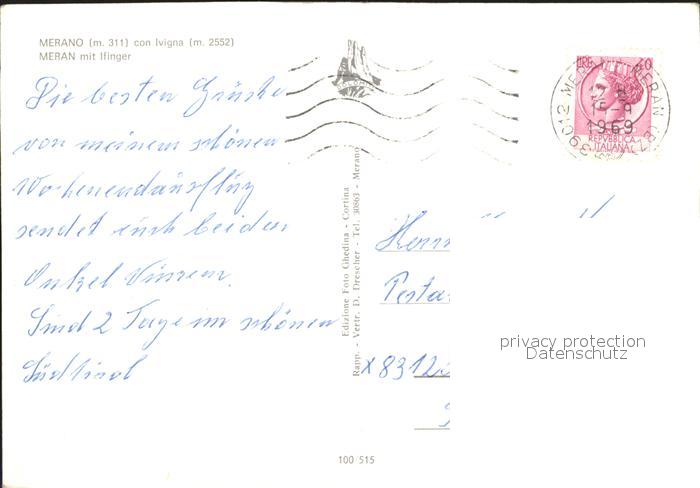 MERANO (m. 311) con Ivigna (m. 2552)
MERAN mit Ifinger
Die besten Grüße
von meinem schönen
Wochenendausflug
sendet euch beiden
Onkel
Sind 2 Tage im schönen
Südtirol
Edizione Foto Ghedina - Cortina
Rapp. - Vertr. D. Drescher - Tel. 30863 - Merano
LIRE 40
REPVBBLICA
ITALIANA
39012 MERANO MERAN
1969
Herrn
x 8312
privacy protection
Datenschutz
100/515